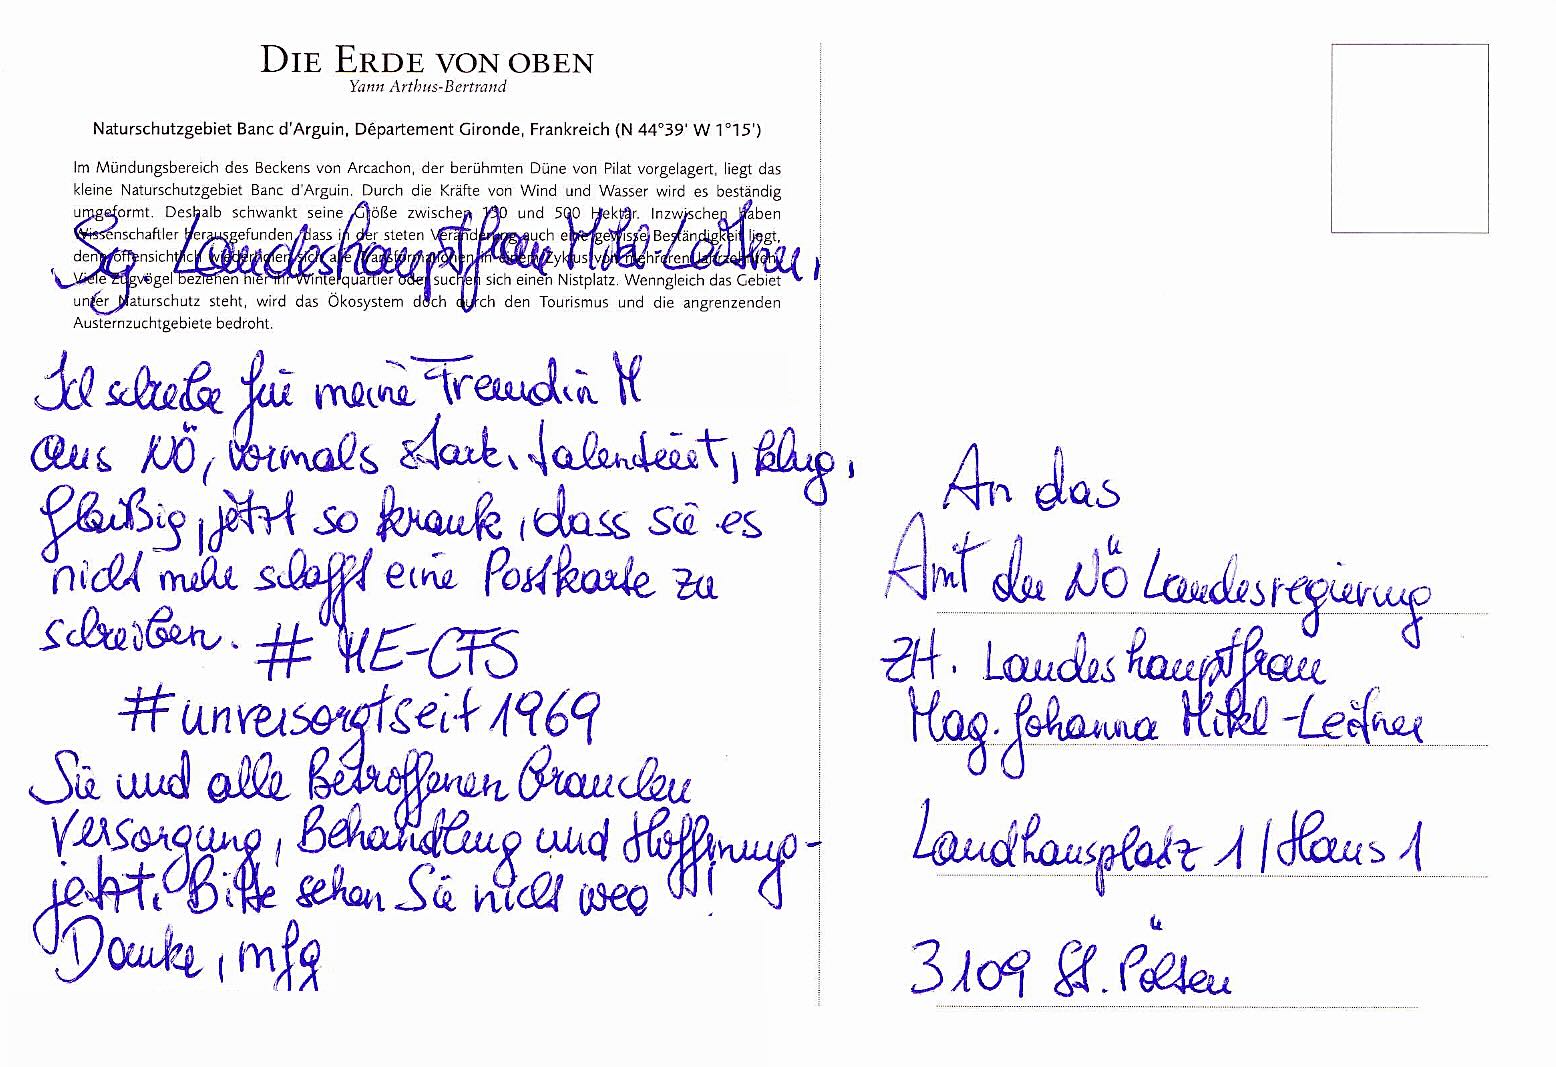 DIE ERDE VON OBEN
Yann Arthus-Bertrand
Naturschutzgebiet Banc d'Arguin, Département Gironde, Frankreich (N 44°39' W 1°15')
Im Mündungsbereich des Beckens von Arcachon, der berühmten Düne von Pilat vorgelagert, liegt das
kleine Naturschutzgebiet Banc d'Arguin. Durch die Kräfte von Wind und Wasser wird es beständig
umgeformt. Deshalb schwankt seine Größe zwischen 150 und 500 Hektar. Inzwischen haben
Wissenschaftler herausgefunden, dass in der steten Veränderung auch eine gewisse Beständigkeit liegt,
denn offensichtlich wiederholen sich alle Transformationen in einem Zyklus von mehreren Jahrzehnten.
Viele Zugvögel beziehen hier ihr Winterquartier oder suchen sich einen Nistplatz. Wenngleich das Gebiet
unter Naturschutz steht, wird das Ökosystem doch durch den Tourismus und die angrenzenden
Austernzuchtgebiete bedroht.
Sg Landeshauptfrau Mikl-Leitner,
Ich schreibe für meine Freundin M
aus NÖ, vormals stark, talentiert, klug,
fleißig, jetzt so krank, dass sie es
nicht mehr schafft eine Postkarte zu
schreiben. # ME-CFS
#unversorgtseit1969
Sie und alle Betroffenen brauchen
Versorgung, Behandlung und Hoffnung-
jetzt. Bitte sehen Sie nicht weg!
Danke, mfg
An das
Amt der NÖ Landesregierung
ZH. Landeshauptfrau
Mag. Johanna Mikl-Leitner
Landhausplatz 1/Haus 1
3109 St. Pölten